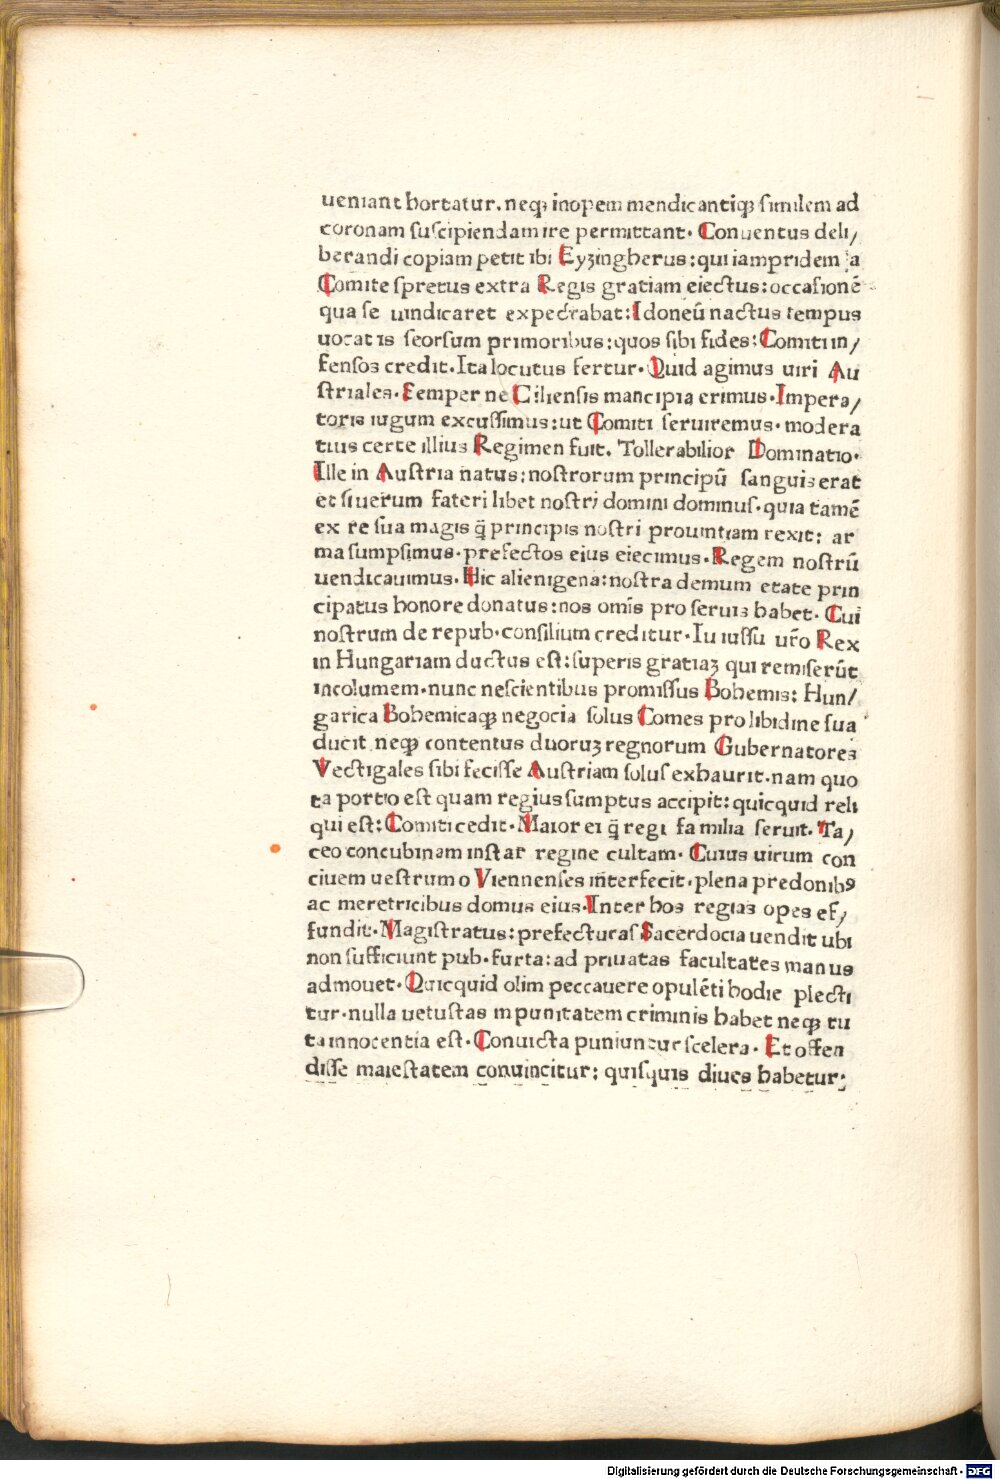 ueniant hortatur. neqȝ inopem mendicantiqȝ similem ad
coronam suscipiendam ire permittant. Conuentus deli/
berandi copiam petit ibi Eyzingherus: qui iampridem a
Comite spretus extra Regis gratiam eiectus: occasionē
qua se uindicaret expectabat: Idoneū nactus tempus
uocatis seorsum primoribus: quos sibi fides: Comiti in/
fensos credit. Ita locutus fertur. Quid agimus uiri Au
striales. Semper ne Ciliensis mancipia erimus. Impera/
toris iugum excussimus: ut Comiti seruiremus. modera
tius certe illius Regimen fuit. Tollerabilior Dominatio.
Ille in Austria natus: nostrorum principū sanguis erat
et si uerum fateri libet nostri domini dominus. quia tamē
ex re sua magis q̄ principis nostri prouintiam rexit: ar
ma sumpsimus. prefectos eius eiecimus. Regem nostrū
uendicauimus. Hic alienigena: nostra demum etate prin
cipatus honore donatus: nos om̄is pro seruis habet. Cui
nostrum de repub. consilium creditur. Iu iussu ur̄o Rex
in Hungariam ductus est: superis gratiaȝ qui remiserūt
incolumem. nunc nescientibus promissus Bohemis: Hun/
garica Bohemicaqȝ negocia solus Comes pro libidine sua
ducit neqȝ contentus duoruȝ regnorum Gubernatores
Vectigales sibi fecisse Austriam solus exhaurit. nam quo
ta portio est quam regius sumptus accipit: quicquid reli
qui est: Comiti cedit. Maior ei q̄ regi familia seruit. Ta/
ceo concubinam instar regine cultam. Cuius uirum con
ciuem uestrum o Viennenses interfecit. plena predonibꝰ
ac meretricibus domus eius. Inter hos regias opes ef/
fundit. Magistratus: prefecturas Sacerdocia uendit ubi
non sufficiunt pub. furta: ad priuatas facultates manus
admouet. Quicquid olim peccauere opulēti hodie plecti
tur. nulla uetustas inpunitatem criminis habet neqȝ tu
ta innocentia est. Conuicta puniuntur scelera. Et offen
disse maiestatem conuincitur: quisquis diues habetur:
Digitalisierung gefördert durch die Deutsche Forschungsgemeinschaft - DFG